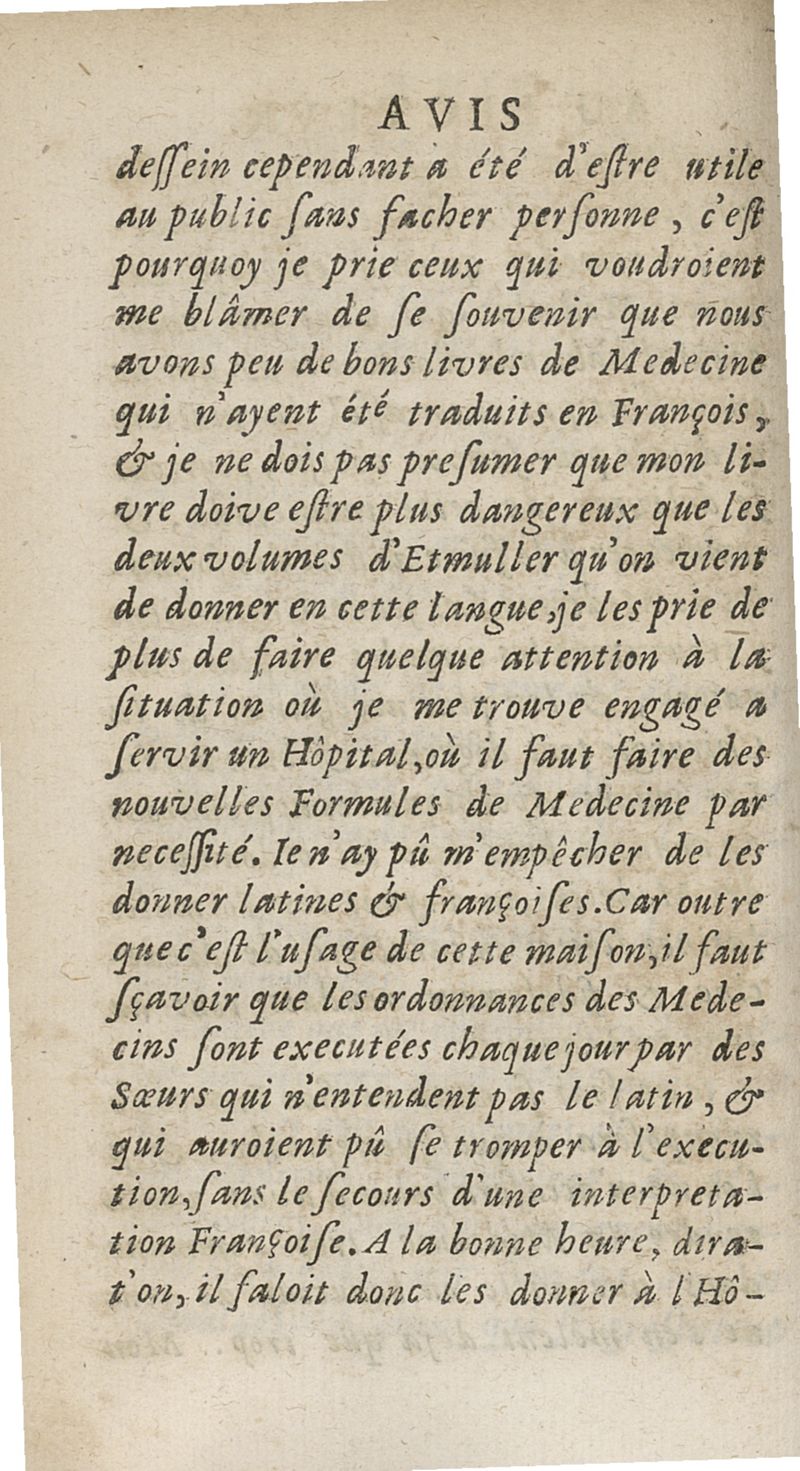 AVIS
deſſein cependant a été d'eſtre utile
au public ſans facher perſonne, c'eſt
pourquoy je prie ceux qui voudroient
me blâmer de ſe ſouvenir que nous
avons peu de bons livres de Medecine
qui n'ayent été traduits en François,
& je ne dois pas preſumer que mon li-
vre doive eſtre plus dangereux que les
deux volumes d'Etmuller qu'on vient
de donner en cette langue, je les prie de
plus de faire quelque attention à la
ſituation où je me trouve engagé a
ſervir un Hôpital, où il faut faire des
nouvelles Formules de Medecine par
neceſſité. Ie n'ay pû m'empêcher de les
donner latines & françoiſes. Car outre
que c'eſt l'uſage de cette maiſon, il faut
ſçavoir que les ordonnances des Mede-
cins ſont executées chaque jour par des
Sœurs qui n'entendent pas le latin, &
qui auroient pû ſe tromper à l'execu-
tion, ſans le ſecours d'une interpreta-
tion Françoiſe. A la bonne heure, dira-
t'on, il faloit donc les donner à l'Hô-